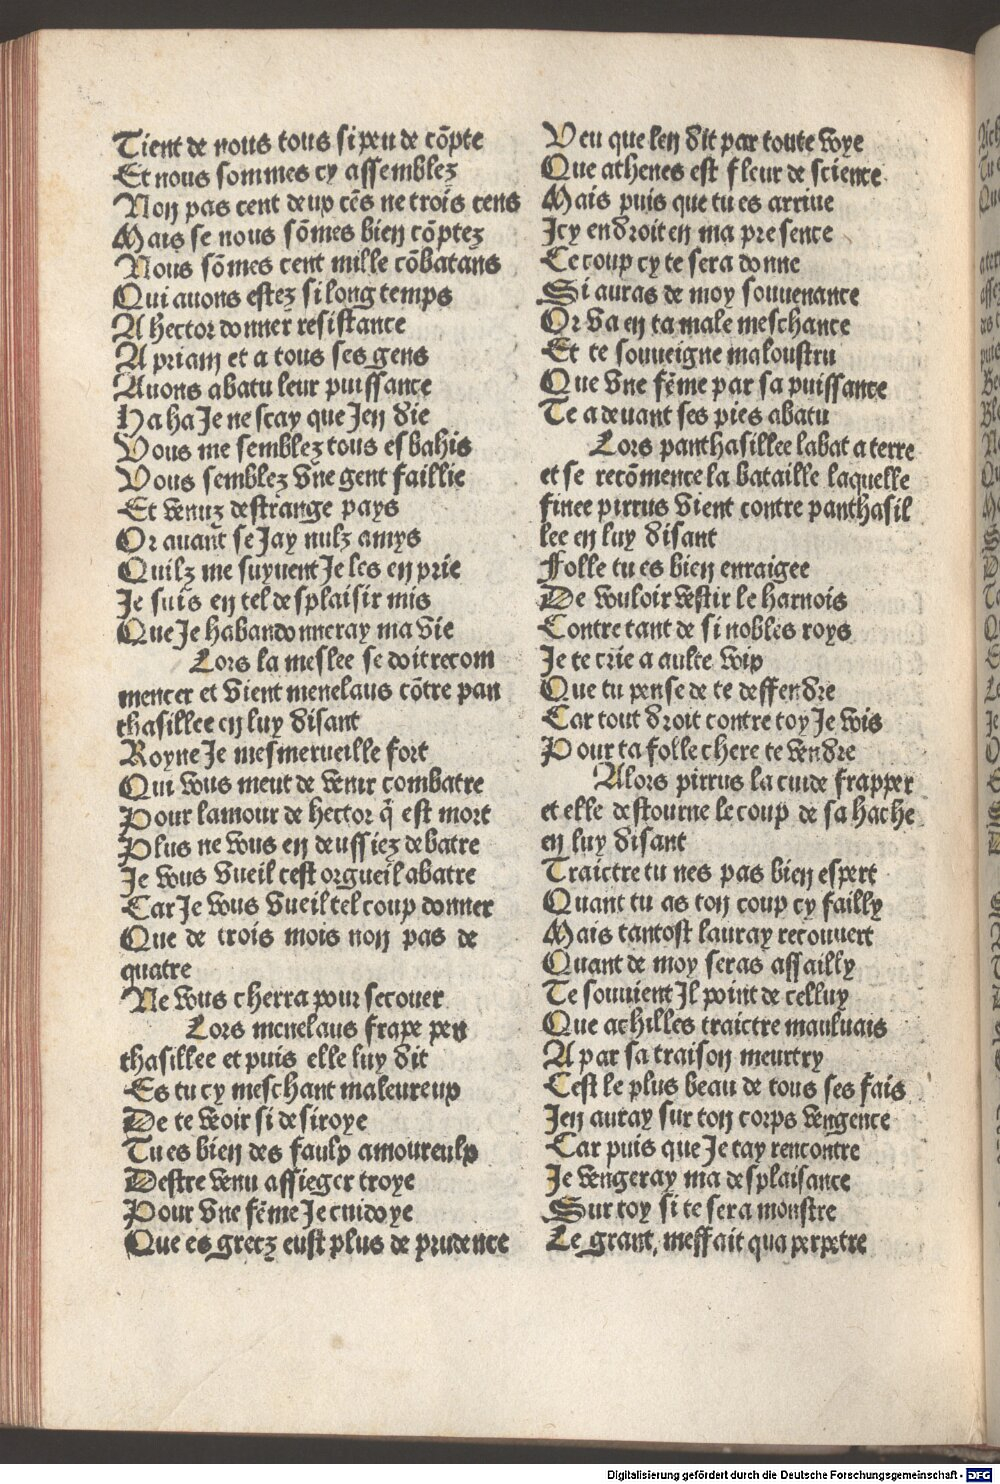 Tient de nous tous si peu de cõpte
Et nous sommes cy assemblez
Non pas cent deux cẽs ne trois cens
Mais se nous sõmes bien cõptez
Nous sõmes cent mille cõbatans
Qui auons estez si long temps
A hector donner resistance
A priam et a tous ses gens
Auons abatu leur puissance
Ha ha Je ne scay que Jen die
Vous me semblez tous esbahis
Vous semblez vne gent faillie
Et venuz destrange pays
Or auant se Jay nulz amys
Quilz me suyuent Je les en prie
Je suis en tel desplaisir mis
Que Je habandonneray ma vie
Lors la meslee se doit recom
mencer et vient menelaus cõtre pan
thasillee en luy disant
Royne Je mesmerueille fort
Qui vous meut de venir combatre
Pour lamour de hector q̃ est mort
Plus ne vous en deussiez debatre
Je vous vueil cest orgueil abatre
Car Je vous vueil tel coup donner
Que de trois mois non pas de
quatre
Ne vous cherra pour secouer
Lors menelaus frape pen
thasillee et puis elle luy dit
Es tu cy meschant maleureux
De te veoir si desiroye
Tu es bien des faulx amoureulx
Destre venu assieger troye
Pour vne fẽme Je cuidoye
Que es grecz eust plus de prudence
Veu que len dit par toute voye
Que athenes est fleur de science
Mais puis que tu es arriue
Icy endroit en ma presence
Ce coup cy te sera donne
Si auras de moy souuenance
Or va en ta male meschance
Et te souueigne maloustru
Que vne fẽme par sa puissance
Te a deuant ses pies abatu
Lors panthasillee labat a terre
et se recõmence la bataille laquelle
finee pirrus vient contre panthasil
lee en luy disant
Folle tu es bien enraigee
De vouloir vestir le harnois
Contre tant de si nobles roys
Je te crie a aulte voix
Que tu pense de te deffendre
Car tout droit contre toy Je vois
Pour ta folle chere te vendre
Alors pirrus la cuide frapper
et elle destourne le coup de sa hache
en luy disant
Traictre tu nes pas bien espert
Quant tu as ton coup cy failly
Mais tantost lauray recouuert
Quant de moy seras assailly
Te souuient Il point de celluy
Que achilles traictre mauluais
A par sa traison meurtry
Cest le plus beau de tous ses fais
Jen auray sur ton corps vengence
Car puis que Je tay rencontre
Je vengeray ma desplaisance
Sur toy si te sera monstre
Le grant, meffait qua perpetre
Digitalisierung gefördert durch die Deutsche Forschungsgemeinschaft - DFG